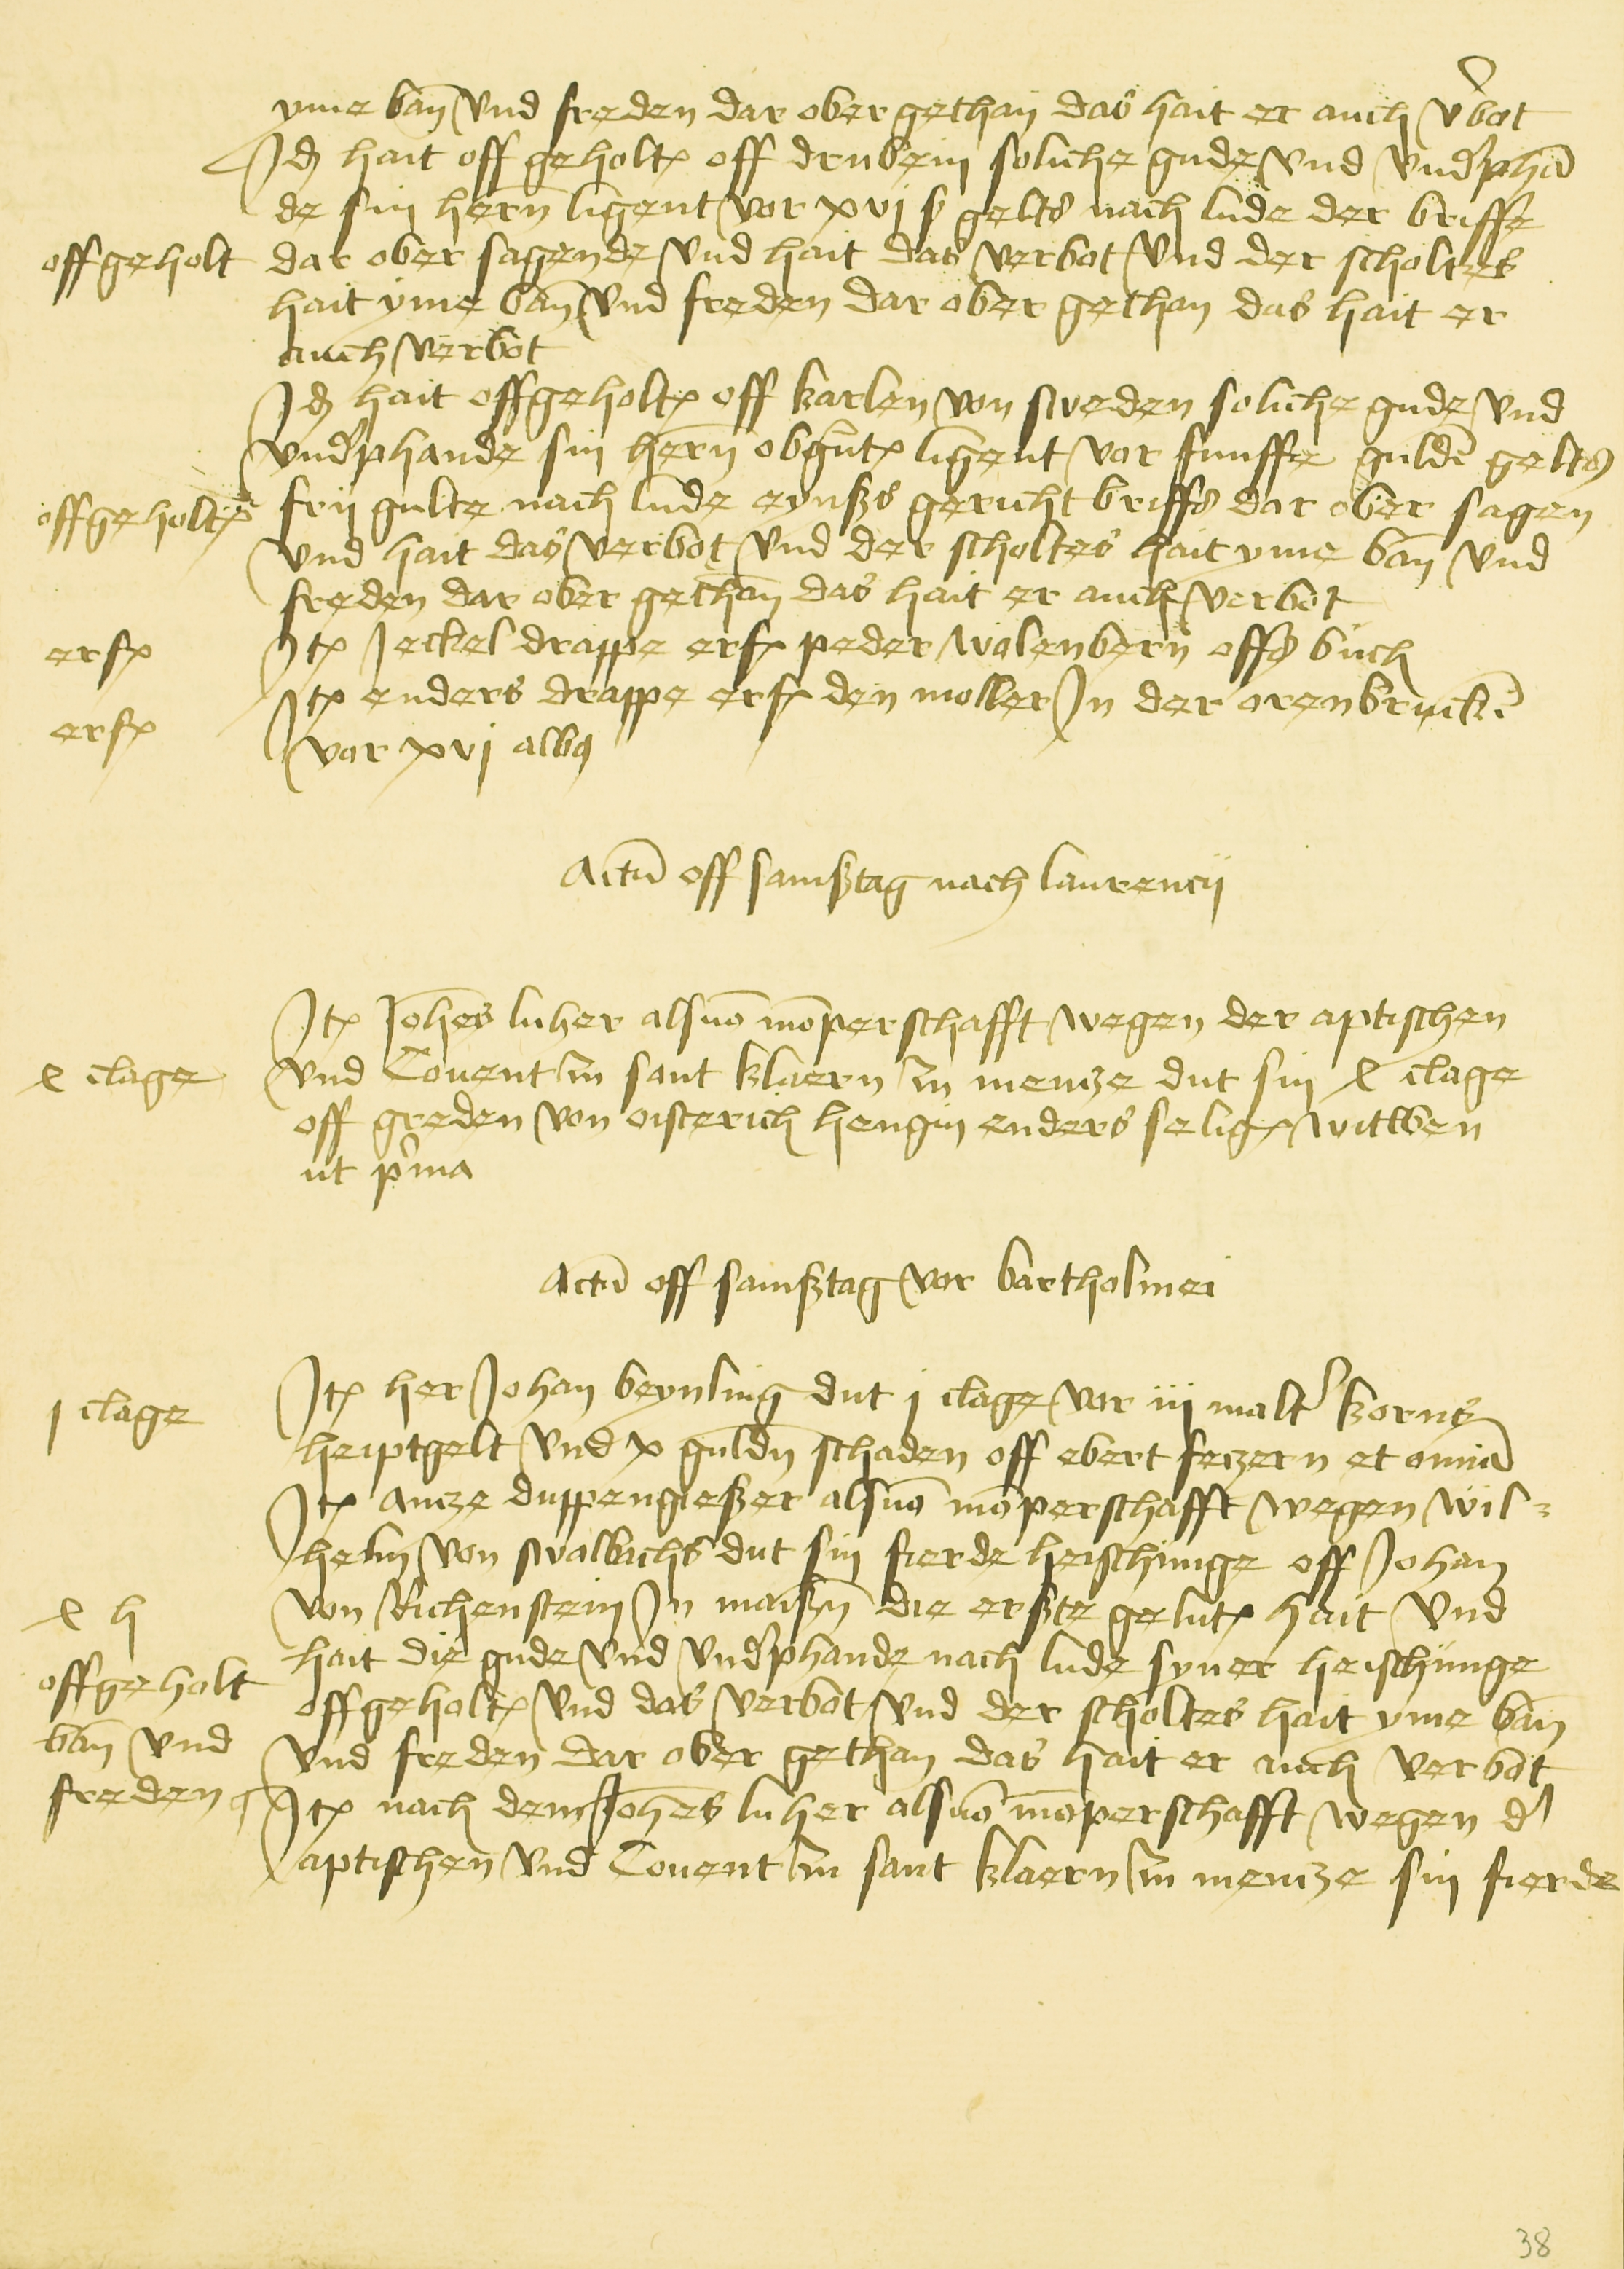 yme ban vnd freden dar ober gethan das hait er auch v'bot
Jd hait off geholt off drubein soliche gude vnd vnd'phan
de sin hern ligent vor xvj ß gelts nach lude der briffe
offgeholt dar ober sagende vnd hait das verbot vnd der scholtes
hait yme ban vnd freden dar ober gethan das hait er
auch verbot
Jd hait offgeholt off karlen von sweden soliche gude vnd
vnd'phande sin hern obgnt ligent vor funffe gulden gelts
offgeholt frij gulte nach lude eynßs gericht briffs dar ober sagen
vnd hait das verbot vnd der scholtes hait yme ban vnd
freden dar ober gethan das hait er auch verbot
erf Jt Jeckel drappe erf peder wolenbern offs buch
erf Jt enders drappe erf den moller Jn der orenbrucken
vor xvj albq
Actu off samßtag nach laurencij
Jt Johes luher alsuo moperschafft wegen der aptischen
x clage vnd Couent in sant klaern in mencze dut sin x clage
off greden von oisterich hengin enders selig witwen
ut p'ma
Actu off samßtag vor bartholmei
j clage Jt her Johan beynling dut j clage vor iij malt' korns
heiptgelt vnd x guldn schaden off ebert feczern et omia
Jt ancze duppengießer alsuo moperschafft wegen wil=
helm von swalbachs dut sin fierde heischunge off Johan
x h von Richenstein Jn maißn die erßte gelut hait vnd
hait die gude vnd vnd'phande nach lude syner heischunge
offgeholt offgeholt vnd das verbot vnd der scholtes hait yme ban
ban vnd vnd freden dar ober gethan das hait er auch verbot
freden Jt nach dem Johes luher alsuo moperschafft wegen d'
aptischen vnd Couent in sant klaern in mencze sin fierde
38